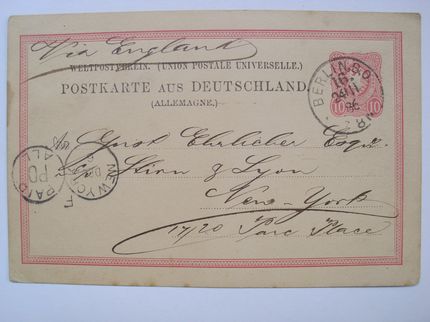 Via England
WELTPOSTVEREIN. (UNION POSTALE UNIVERSELLE.)
POSTKARTE AUS DEUTSCHLAND.
(ALLEMAGNE.)
BERLIN S.O.
10 10
An Ernst Ehrlicher Esqre.
Stirn & Lyon
New-York
17/20 Parc Place
PAID
ALL
NEW YORK